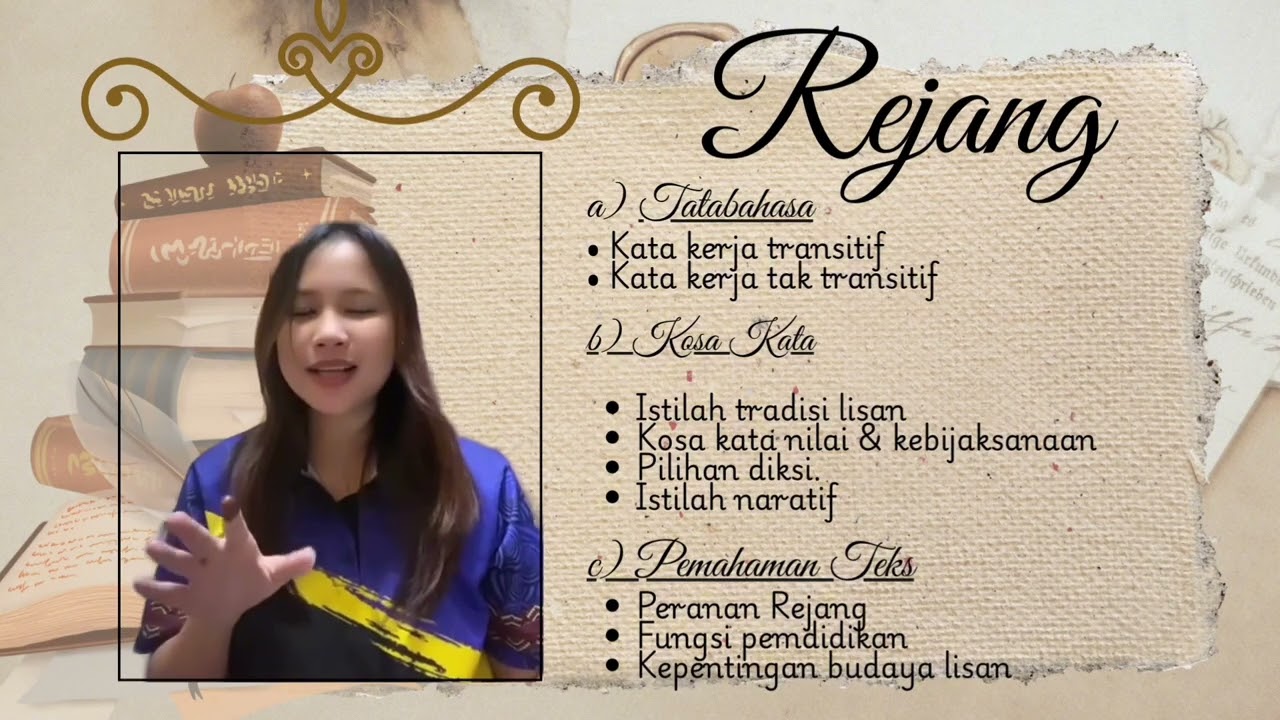 Rejang
a) Tatabahasa
• Kata kerja transitif
• Kata kerja tak transitif
b) Kosa Kata
• Istilah tradisi lisan
• Kosa kata nilai & kebijaksanaan
• Pilihan diksi.
• Istilah naratif
c) Pemahaman Teks
• Peranan Rejang
• Fungsi pemdidikan
• Kepentingan budaya lisan